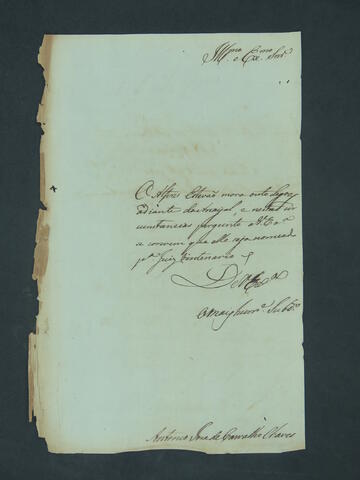 Illmo e Exmo Snr
O Alferes Estevão mora outo legoas
adiante do Arrayal, e nestas cir
cunstancias pergunto a V Exa
se convem que elle seja nomeado
pa Juiz Ordenario
De V Exa
Antonio Jose de Carvalho Chaves